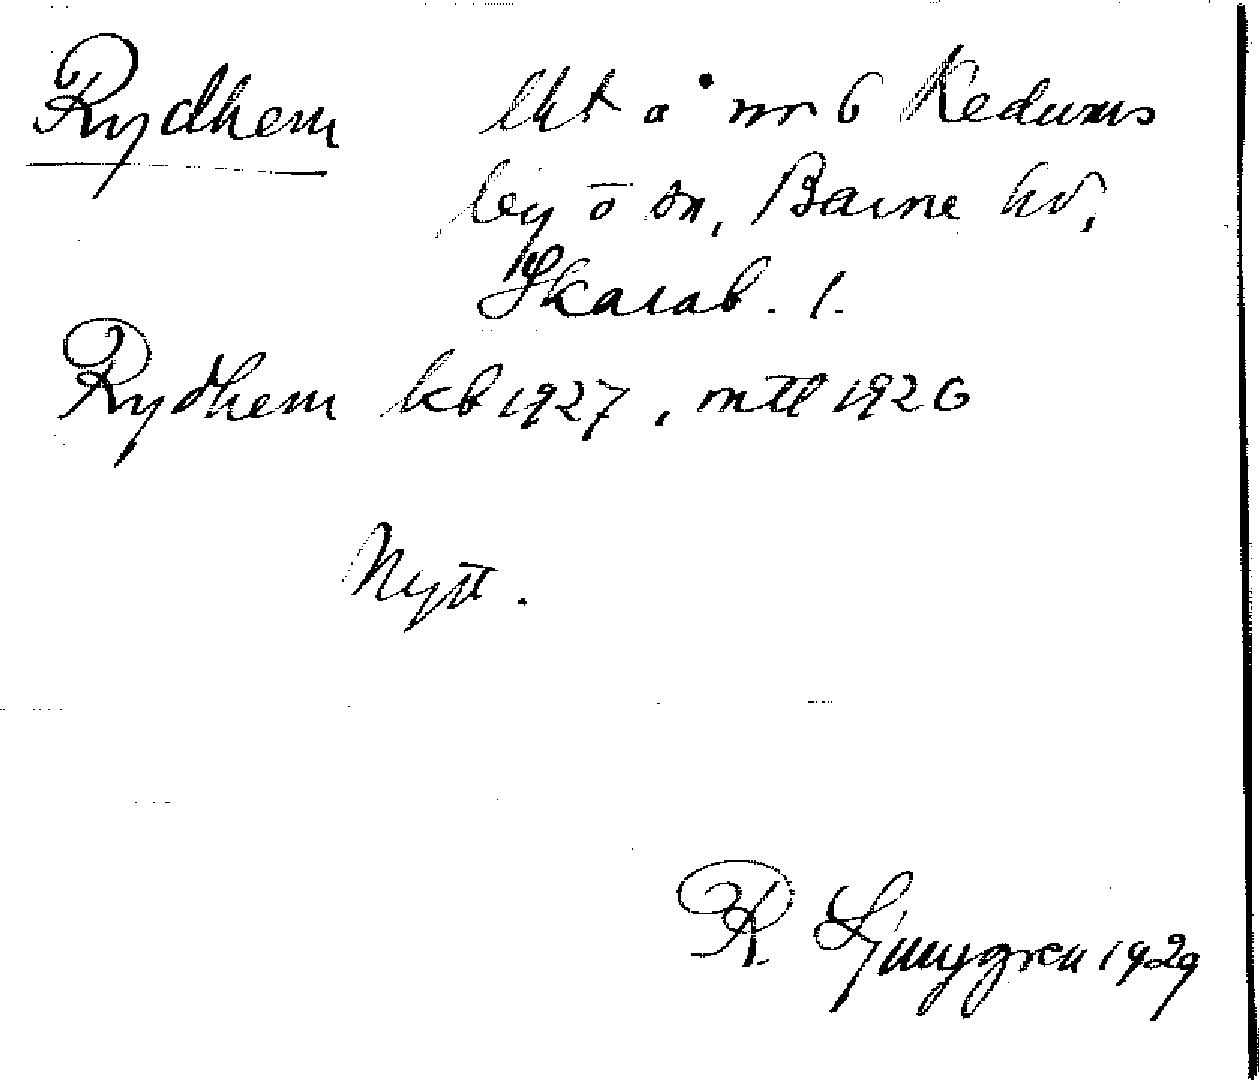 Rydhem lht å nr 6 Kedums
by o sn, Barne hd,
Skarab. l.
Rydhem kb 1927, mtl 1926
Nytt.
R Ljunggren 1929